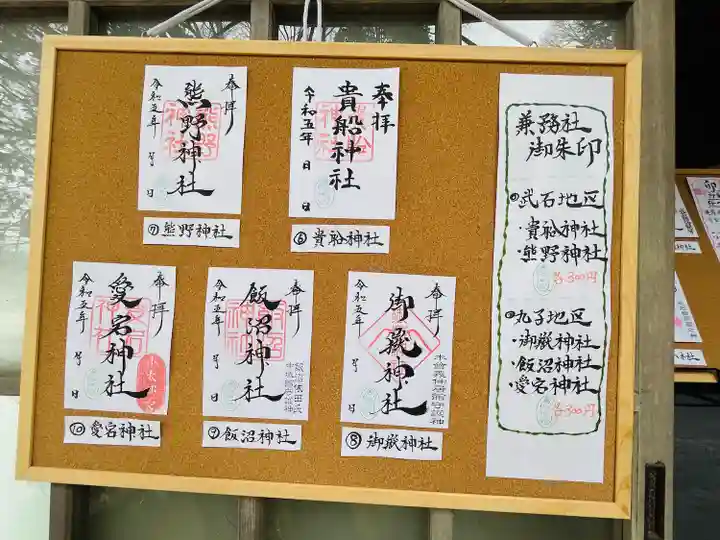 奉拝
熊野神社
令和五年 月 日
⑦熊野神社
奉拝
貴船神社
令和五年 月 日
⑥貴船神社
奉拝
愛宕神社
令和五年 月 日
⑩愛宕神社
奉拝
飯沼神社
令和五年 月 日
⑨飯沼神社
奉拝
御嶽神社
令和五年 月 日
⑧御嶽神社
兼務社
御朱印
武石地区
・貴船神社
・熊野神社
各300円
丸子地区
・御嶽神社
・飯沼神社
・愛宕神社
各300円